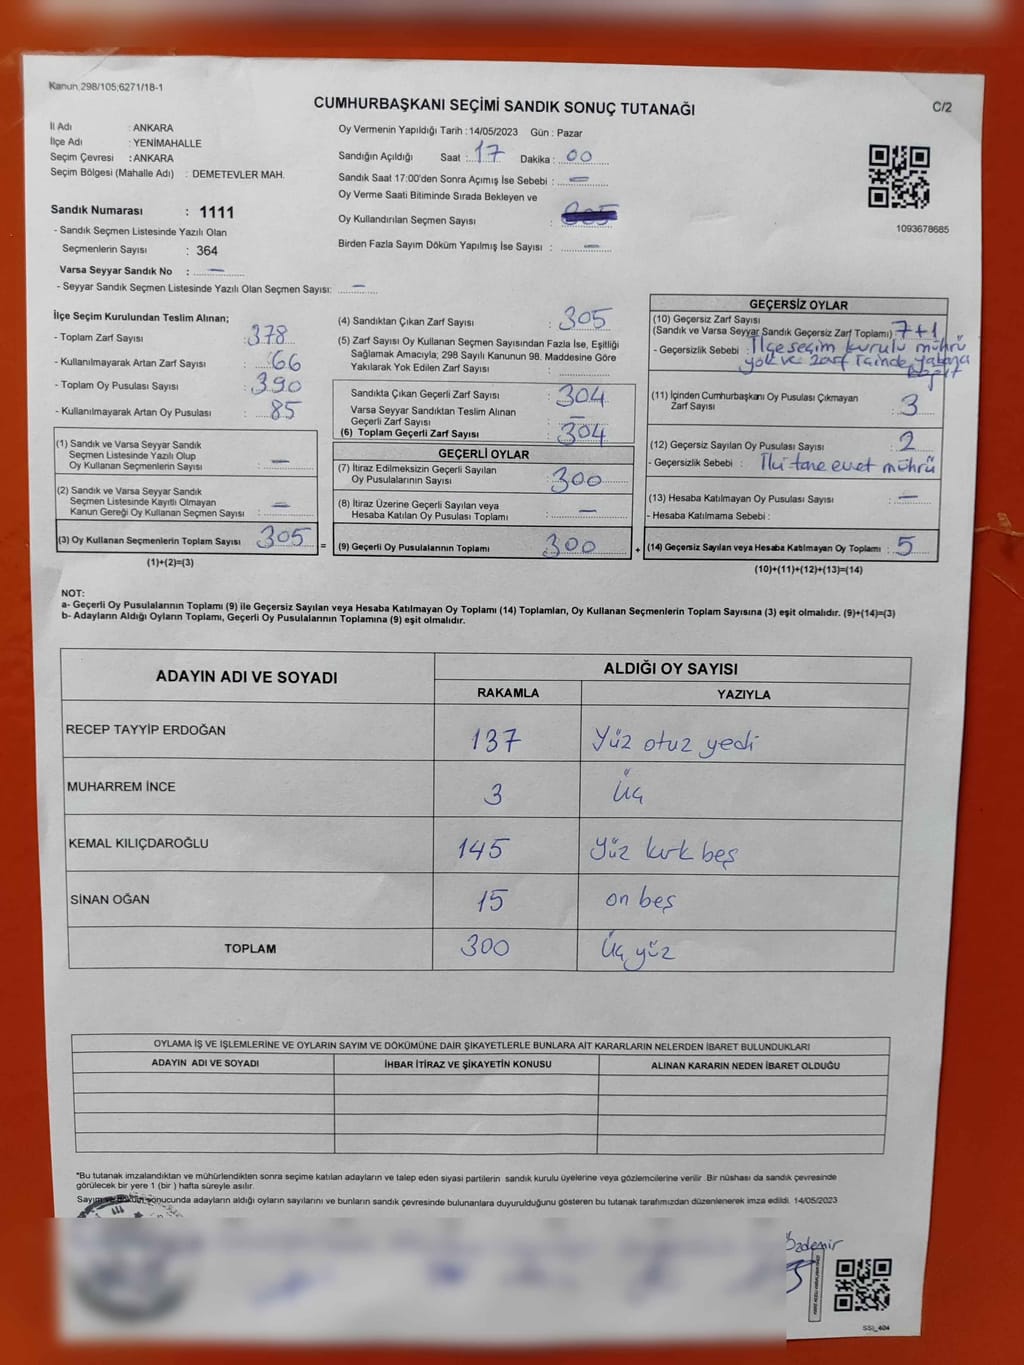 Kanun.298/105;6271/18-1
CUMHURBAŞKANI SEÇİMİ SANDIK SONUÇ TUTANAĞI
C/2
İl Adı : ANKARA
İlçe Adı : YENİMAHALLE
Seçim Çevresi : ANKARA
Seçim Bölgesi (Mahalle Adı) : DEMETEVLER MAH.
Sandık Numarası : 1111
- Sandık Seçmen Listesinde Yazılı Olan
Seçmenlerin Sayısı : 364
Varsa Seyyar Sandık No : —
- Seyyar Sandık Seçmen Listesinde Yazılı Olan Seçmen Sayısı: —
Oy Vermenin Yapıldığı Tarih : 14/05/2023 Gün : Pazar
Sandığın Açıldığı Saat : 17 Dakika : 00
Sandık Saat 17:00'den Sonra Açımış İse Sebebi : —
Oy Verme Saati Bitiminde Sırada Bekleyen ve
Oy Kullandırılan Seçmen Sayısı :
Birden Fazla Sayım Döküm Yapılmış İse Sayısı : —
1093678685
İlçe Seçim Kurulundan Teslim Alınan;
- Toplam Zarf Sayısı : 378
- Kullanılmayarak Artan Zarf Sayısı : 66
- Toplam Oy Pusulası Sayısı : 390
- Kullanılmayarak Artan Oy Pusulası : 85
(1) Sandık ve Varsa Seyyar Sandık
Seçmen Listesinde Yazılı Olup
Oy Kullanan Seçmenlerin Sayısı : —
(2) Sandık ve Varsa Seyyar Sandık
Seçmen Listesinde Kayıtlı Olmayan
Kanun Gereği Oy Kullanan Seçmen Sayısı : —
(3) Oy Kullanan Seçmenlerin Toplam Sayısı : 305
(1)+(2)=(3)
(4) Sandıktan Çıkan Zarf Sayısı : 305
(5) Zarf Sayısı Oy Kullanan Seçmen Sayısından Fazla İse, Eşitliği
Sağlamak Amacıyla; 298 Sayılı Kanunun 98. Maddesine Göre
Yakılarak Yok Edilen Zarf Sayısı :
Sandıkta Çıkan Geçerli Zarf Sayısı : 304
Varsa Seyyar Sandıktan Teslim Alınan
Geçerli Zarf Sayısı : —
(6) Toplam Geçerli Zarf Sayısı : 304
GEÇERLİ OYLAR
(7) İtiraz Edilmeksizin Geçerli Sayılan
Oy Pusulalarının Sayısı : 300
(8) İtiraz Üzerine Geçerli Sayılan veya
Hesaba Katılan Oy Pusulası Toplamı : —
= (9) Geçerli Oy Pusulalarının Toplamı 300
GEÇERSİZ OYLAR
(10) Geçersiz Zarf Sayısı
(Sandık ve Varsa Seyyar Sandık Geçersiz Zarf Toplamı) 7+1
- Geçersizlik Sebebi : İlçe seçim kurulu mührü
yok ve zarf içinde yabancı
(11) İçinden Cumhurbaşkanı Oy Pusulası Çıkmayan
Zarf Sayısı : 3
(12) Geçersiz Sayılan Oy Pusulası Sayısı : 2
- Geçersizlik Sebebi : İki tane evet mührü
(13) Hesaba Katılmayan Oy Pusulası Sayısı : —
- Hesaba Katılmama Sebebi :
+ (14) Geçersiz Sayılan veya Hesaba Katılmayan Oy Toplamı : 5
(10)+(11)+(12)+(13)=(14)
NOT:
a- Geçerli Oy Pusulalarının Toplamı (9) ile Geçersiz Sayılan veya Hesaba Katılmayan Oy Toplamı (14) Toplamları, Oy Kullanan Seçmenlerin Toplam Sayısına (3) eşit olmalıdır. (9)+(14)=(3)
b- Adayların Aldığı Oyların Toplamı, Geçerli Oy Pusulalarının Toplamına (9) eşit olmalıdır.
ADAYIN ADI VE SOYADI
ALDIĞI OY SAYISI
RAKAMLA YAZIYLA
RECEP TAYYİP ERDOĞAN 137 Yüz otuz yedi
MUHARREM İNCE 3 Üç
KEMAL KILIÇDAROĞLU 145 Yüz kırk beş
SİNAN OĞAN 15 on beş
TOPLAM 300 Üç yüz
OYLAMA İŞ VE İŞLEMLERİNE VE OYLARIN SAYIM VE DÖKÜMÜNE DAİR ŞİKAYETLERLE BUNLARA AİT KARARLARIN NELERDEN İBARET BULUNDUKLARI
ADAYIN ADI VE SOYADI İHBAR İTİRAZ VE ŞİKAYETİN KONUSU ALINAN KARARIN NEDEN İBARET OLDUĞU
*Bu tutanak imzalandıktan ve mühürlendikten sonra seçime katılan adayların ve talep eden siyasi partilerin sandık kurulu üyelerine veya gözlemcilerine verilir. Bir nüshası da sandık çevresinde
görülecek bir yere 1 (bir ) hafta süreyle asılır.
Sayım ve döküm sonucunda adayların aldığı oyların sayılarını ve bunların sandık çevresinde bulunanlara duyurulduğunu gösteren bu tutanak tarafımızdan düzenlenerek imza edildi. 14/05/2023
Özdemir
SSI_404